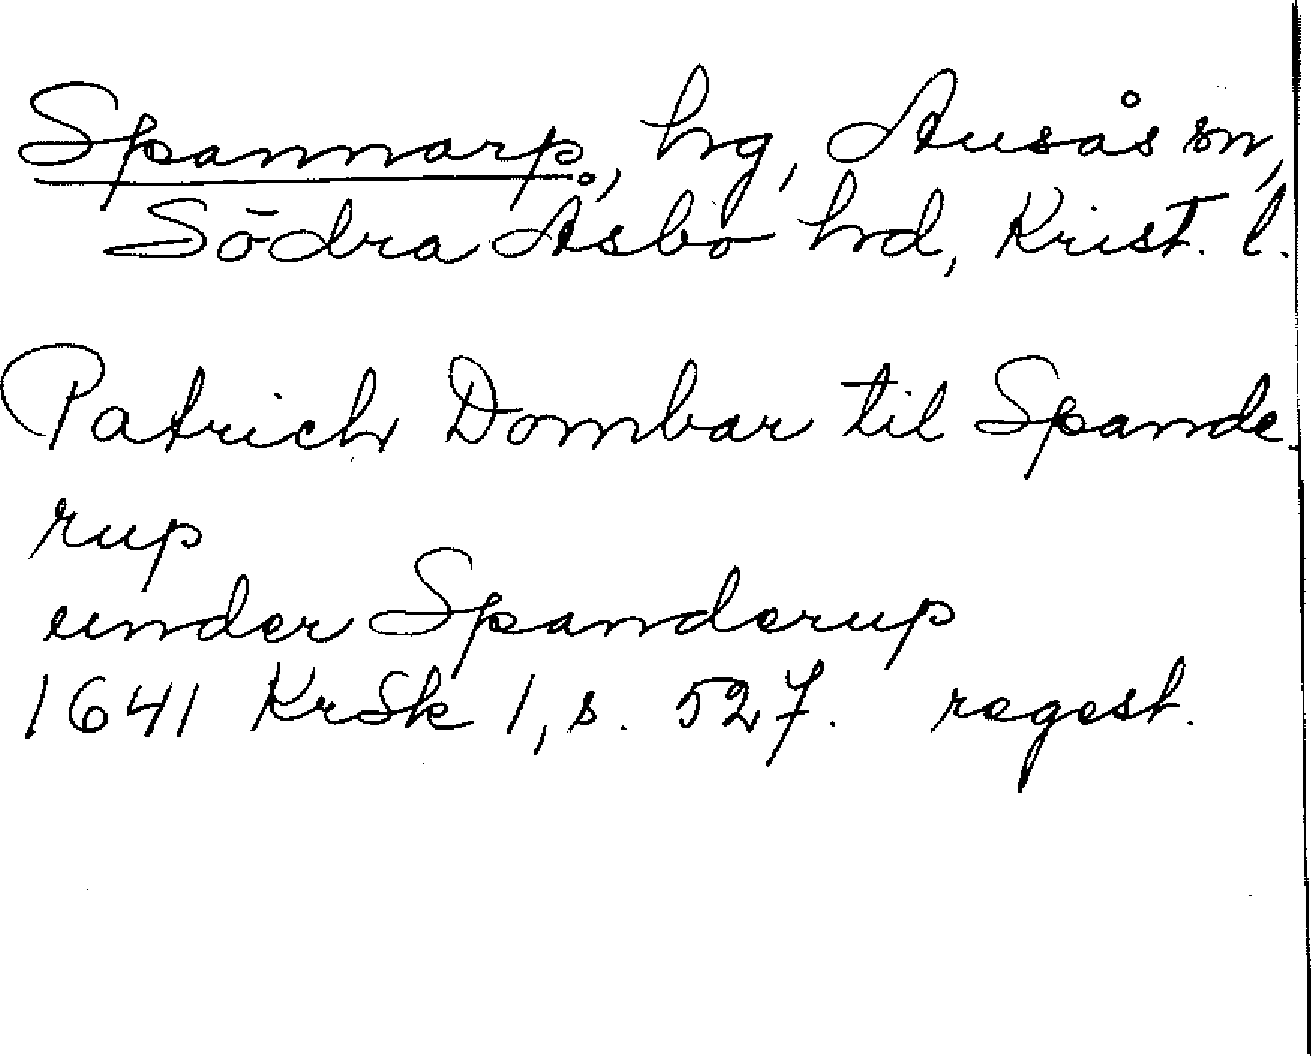 Spannarp, hg, Ausås sn,
Södra Åsbo hd, Krist. l.
Patrich Dombar til Spande-
rup
under Spanderup
1641 KrSk 1, s. 527. regest.